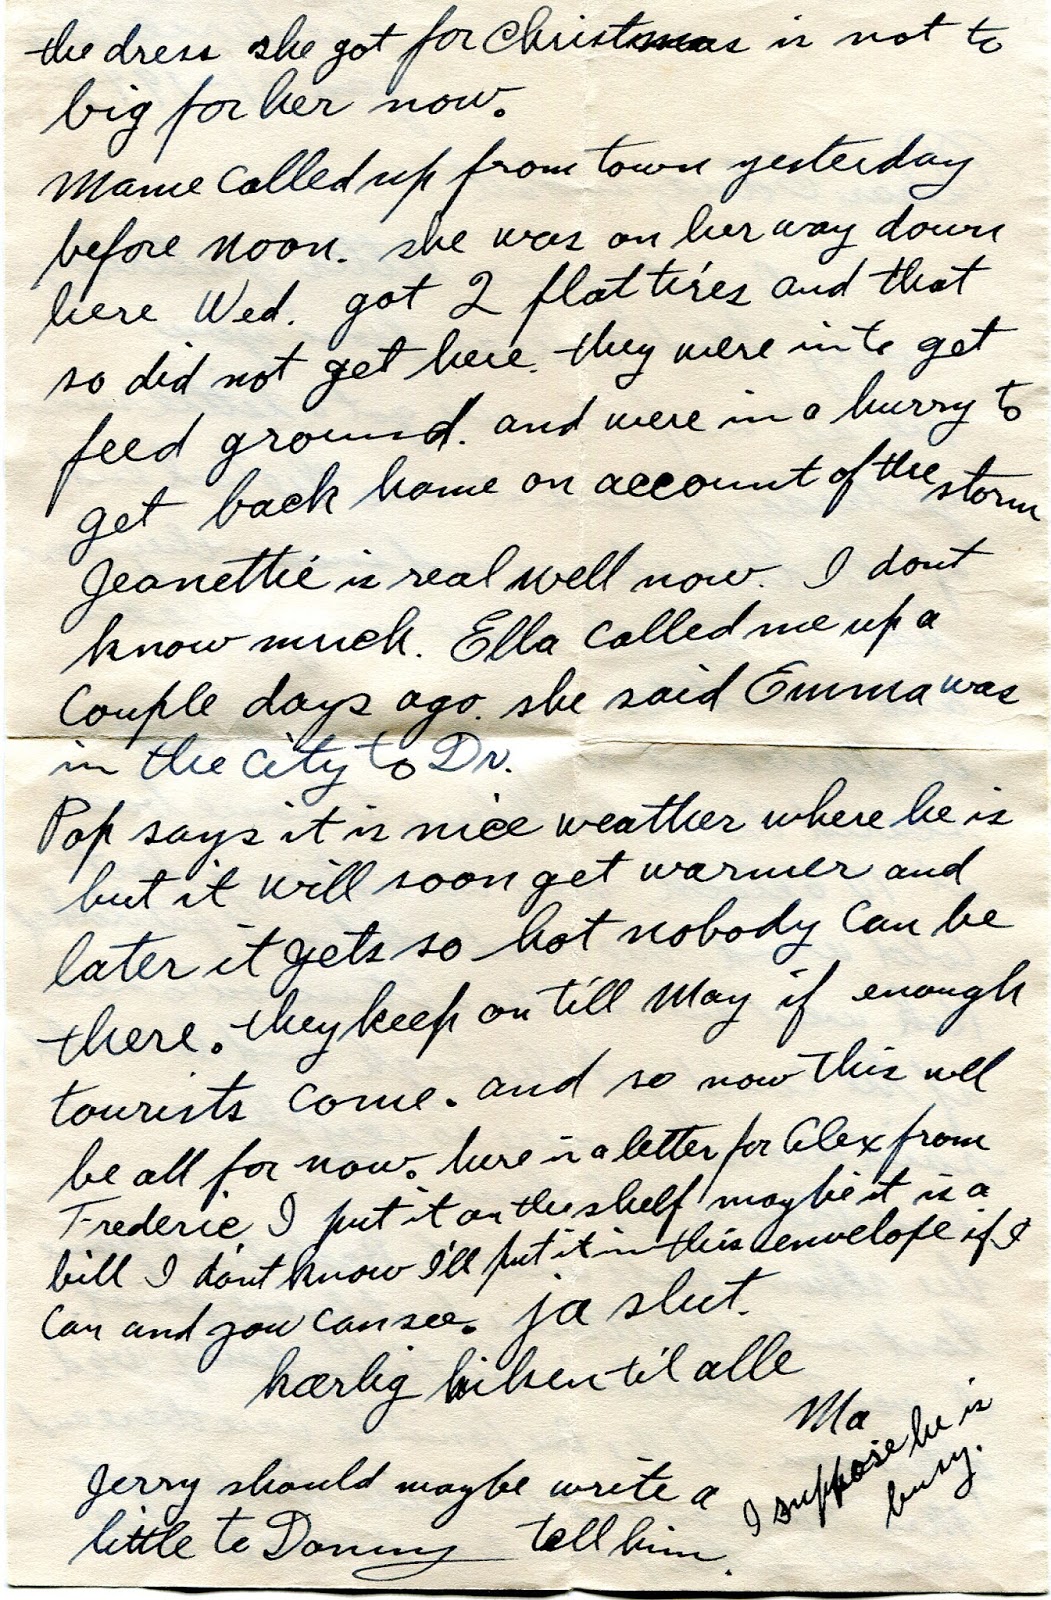 the dress she got for Christmas is not to
big for her now.
Mame called up from town yesterday
before noon. she was on her way down
here Wed. got 2 flat tires and that
so did not get here. they were in to get
feed ground. and were in a hurry to
get back home on account of the storm
Jeanettie is real well now. I dont
know much. Ella called me up a
Couple days ago. she said Emma was
in the city to Dr.
Pop says it is nice weather where he is
but it will soon get warmer and
later it gets so hot nobody can be
there. they keep on till May if enough
tourists come. and so now this will
be all for now. here is a letter for Alex from
Frederic, I put it on the shelf maybe it is a
bill I dont know I'll put it in this envelope if I
Can and you can see. ja slut.
kærlig hilsen til alle
Ma
Jerry should maybe write a
little to Donny tell him.
I suppose he is
busy.